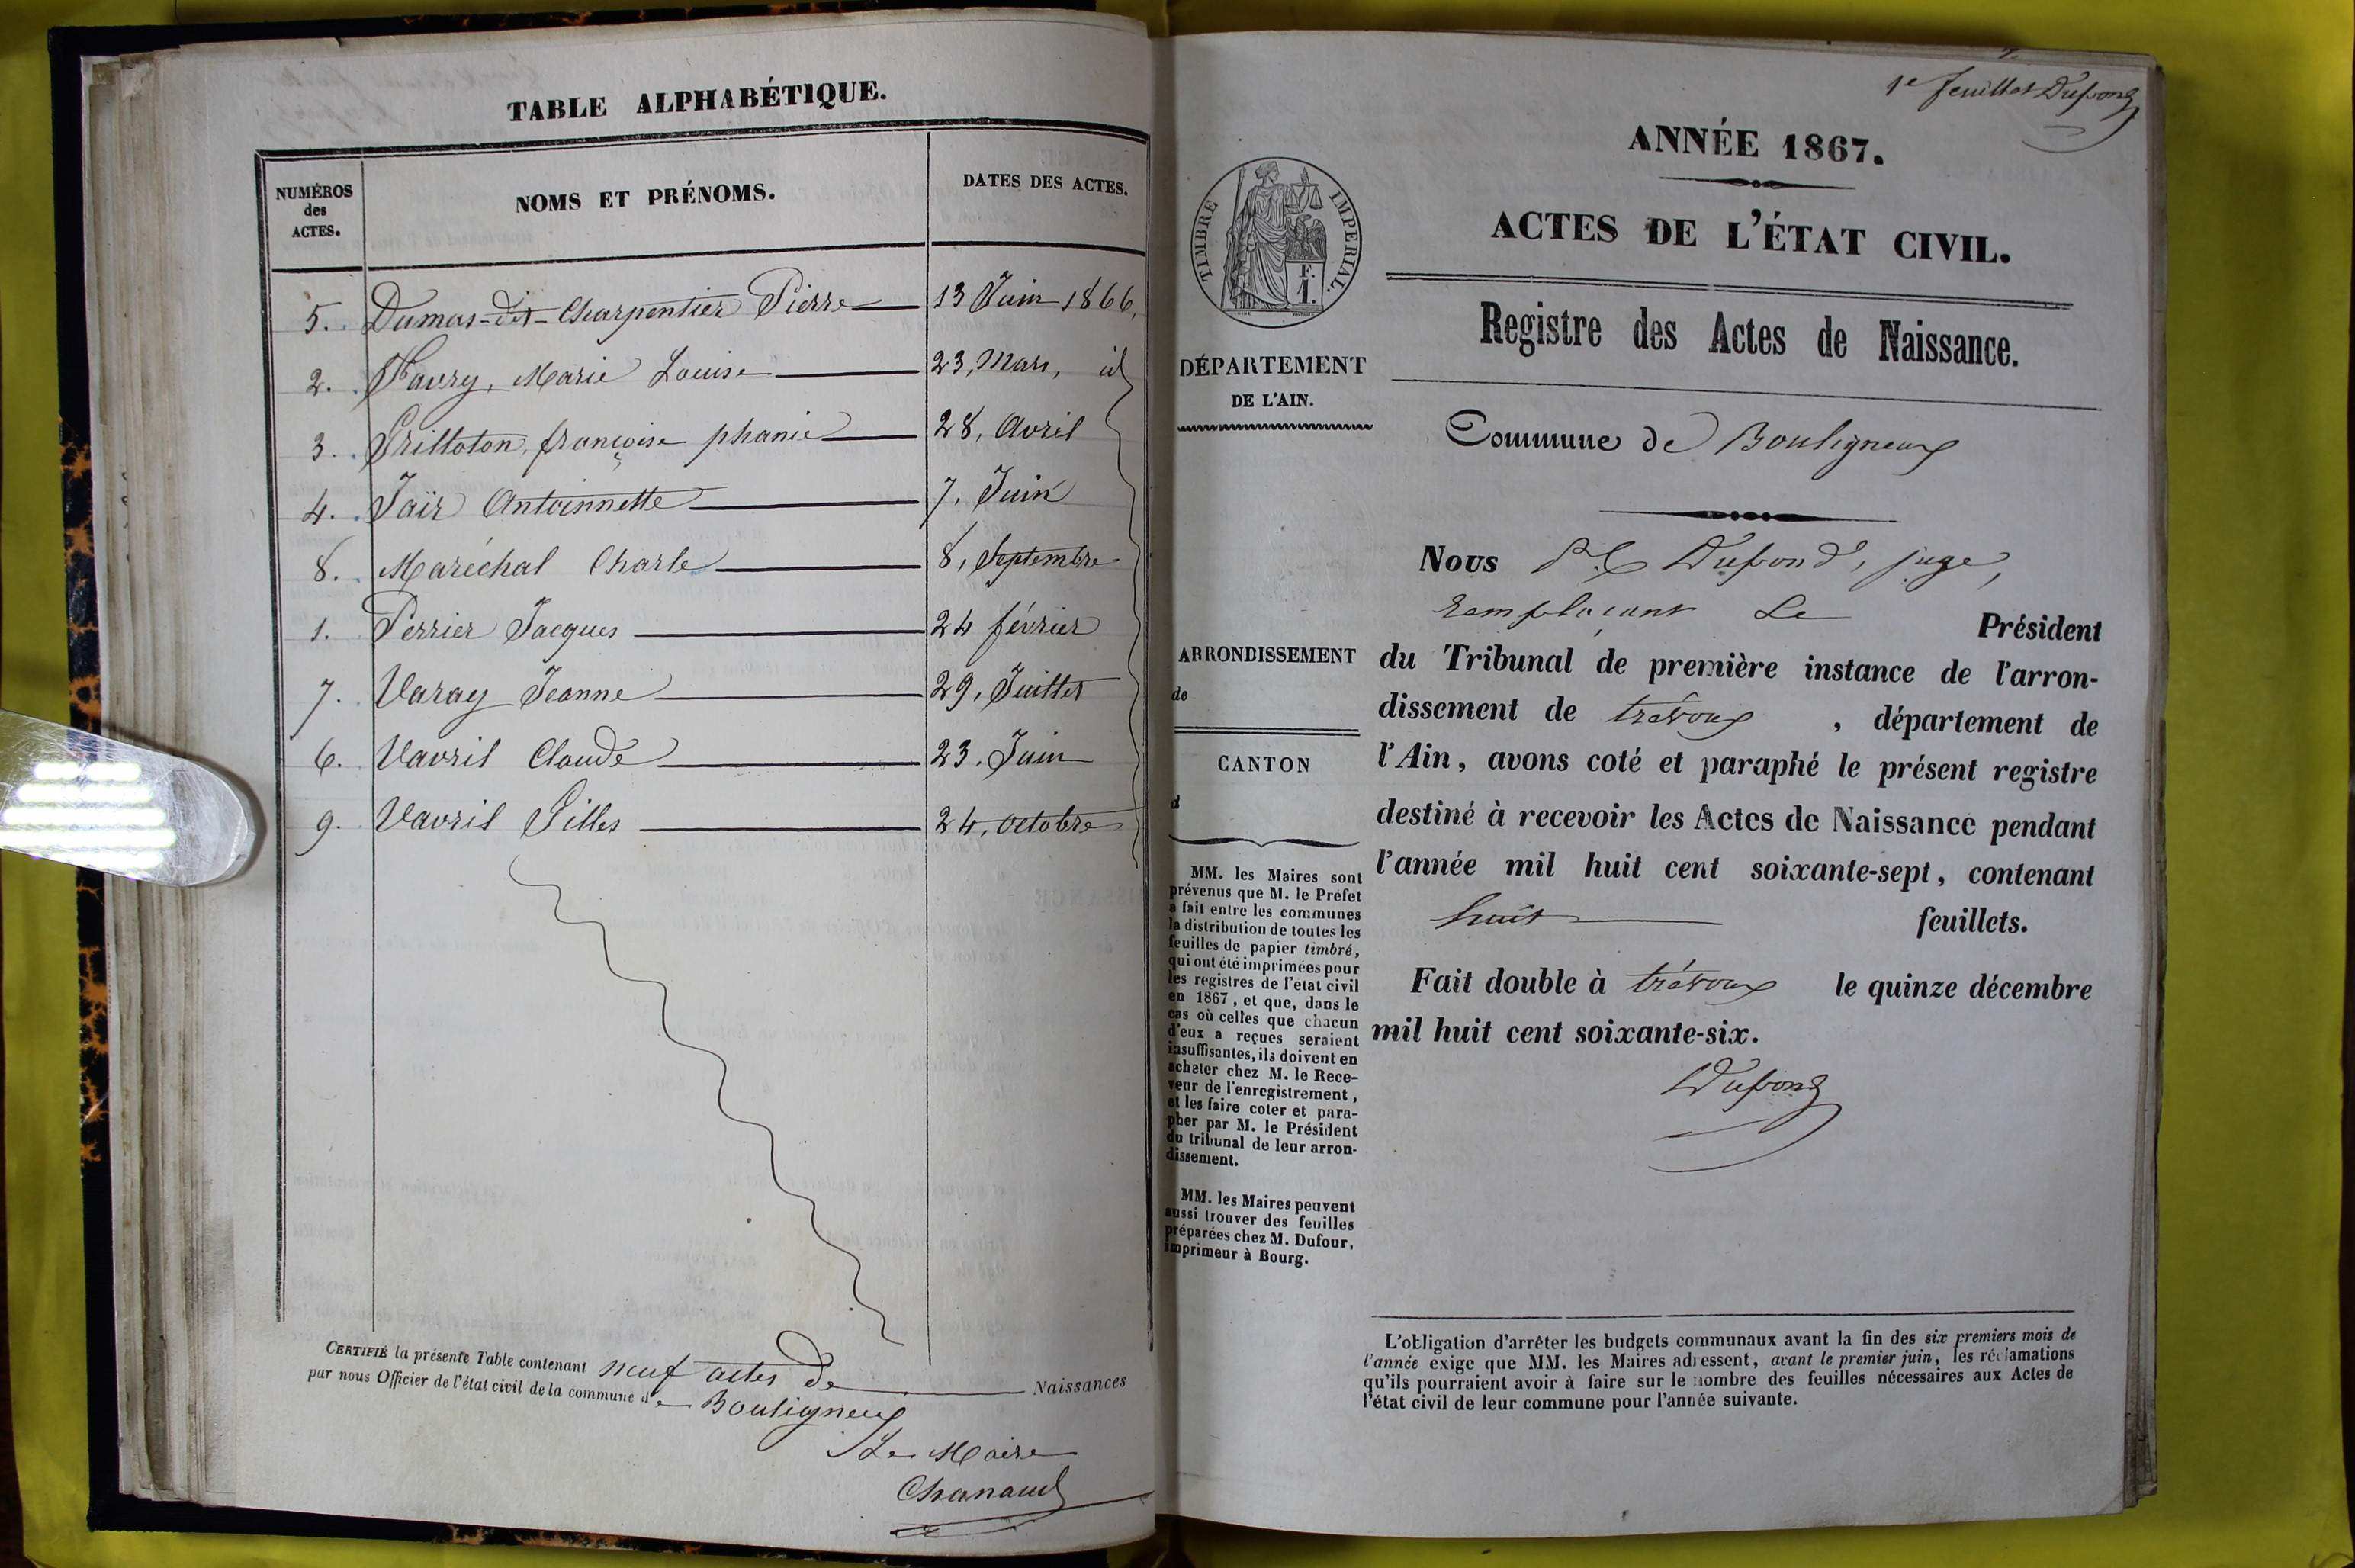 TABLE ALPHABÉTIQUE.
NUMÉROS
des
ACTES.
NOMS ET PRÉNOMS.
DATES DES ACTES.
5. Dumas-dit-Charpentier Pierre 13 Juin 1866,
2. Favry, Marie Louise 23, Mars, id
3. Grilloton, françoise phanie 28, Avril
4. Jaïr Antoinnette 7, Juin
8. Maréchal Charle 8, Septembre
1. Perrier Jacques 24 février
7. Varay Jeanne 29, Juillet
6. Vavril Claude 23, Juin
9. Vavril Gilles 24, octobre
CERTIFIÉ la présente Table contenant neuf actes de Naissances
par nous Officier de l'état civil de la commune de Bouligneux
Le Maire
Chanaud
1e feuillet Dupond
ANNÉE 1867.
ACTES DE L'ÉTAT CIVIL.
Registre des Actes de Naissance.
TIMBRE IMPÉRIAL.
F.
1.
DÉPARTEMENT
DE L'AIN.
Commune de Bouligneux
Nous Dupond, juge,
remplaçant Le Président
du Tribunal de première instance de l'arron-
dissement de trévoux, département de
l'Ain, avons coté et paraphé le présent registre
destiné à recevoir les Actes de Naissance pendant
l'année mil huit cent soixante-sept, contenant
huit feuillets.
Fait double à trévoux le quinze décembre
mil huit cent soixante-six.
Dupond
ARRONDISSEMENT
de
CANTON
d
MM. les Maires sont
prévenus que M. le Préfet
a fait entre les communes
la distribution de toutes les
feuilles de papier timbré,
qui ont été imprimées pour
les registres de l'état civil
en 1867, et que, dans le
cas où celles que chacun
d'eux a reçues seraient
insuffisantes, ils doivent en
acheter chez M. le Rece-
veur de l'enregistrement,
et les faire coter et para-
pher par M. le Président
du tribunal de leur arron-
dissement.
MM. les Maires peuvent
aussi trouver des feuilles
préparées chez M. Dufour,
imprimeur à Bourg.
L'obligation d'arrêter les budgets communaux avant la fin des six premiers mois de
l'année exige que MM. les Maires adressent, avant le premier juin, les réclamations
qu'ils pourraient avoir à faire sur le nombre des feuilles nécessaires aux Actes de
l'état civil de leur commune pour l'année suivante.